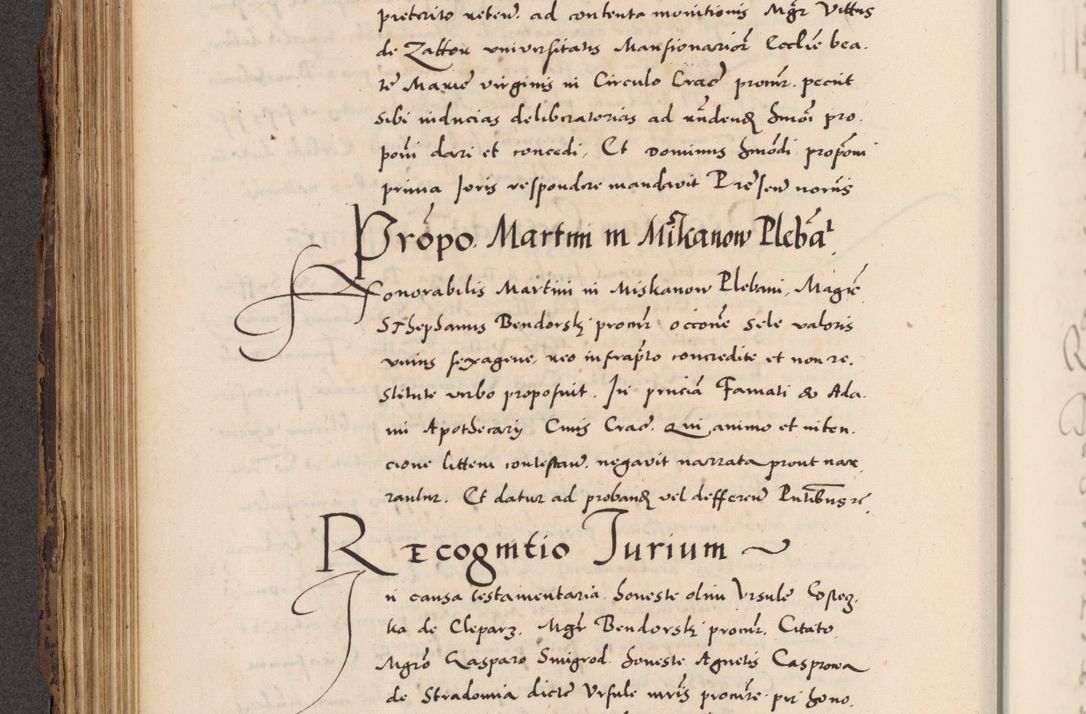 preterito veteri ad contenta monitionis Mgr Vittus
de Zattor universitatis Mansionarior Ecclie bea.
te Marie virginis in Circulo Crac procur. peciit
sibi inducias deliberatorias ad respondend hmoi pro.
poni dari et concedi, Et Dominus hmodi proponi
prima Juris respondere mandavit Presen
Propo. Martini in Miskanow Pleba.
Honorabilis Martini in Miskanow Plebani, Magr
SThephanus Bendorski procur occone sele valoris
unius sexagene, reo infrapto concredite et non re.
stitute verbo proposuit. In pnciam Famati do Ada.
mi Apothecarij Civis Crac. Qui animo et inten.
cione littem contestan. negavit narrata prout nar,
rantur. Et datur ad proband vel defferen Pntibus
Recognitio Jurium
In causa testamentaria honeste olim Ursule
ka de Cleparz. Mgr Bendorski procur. Citato
Mgro Gasparo Smigrod. honeste Agnetis Casprowa
de Stradomia dicte Ursule mris procure pri hono.